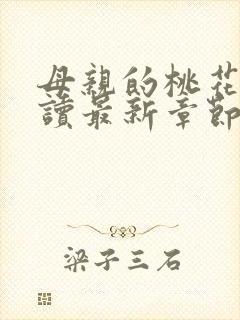 母親的桃花
讀最新章節
梁子三石